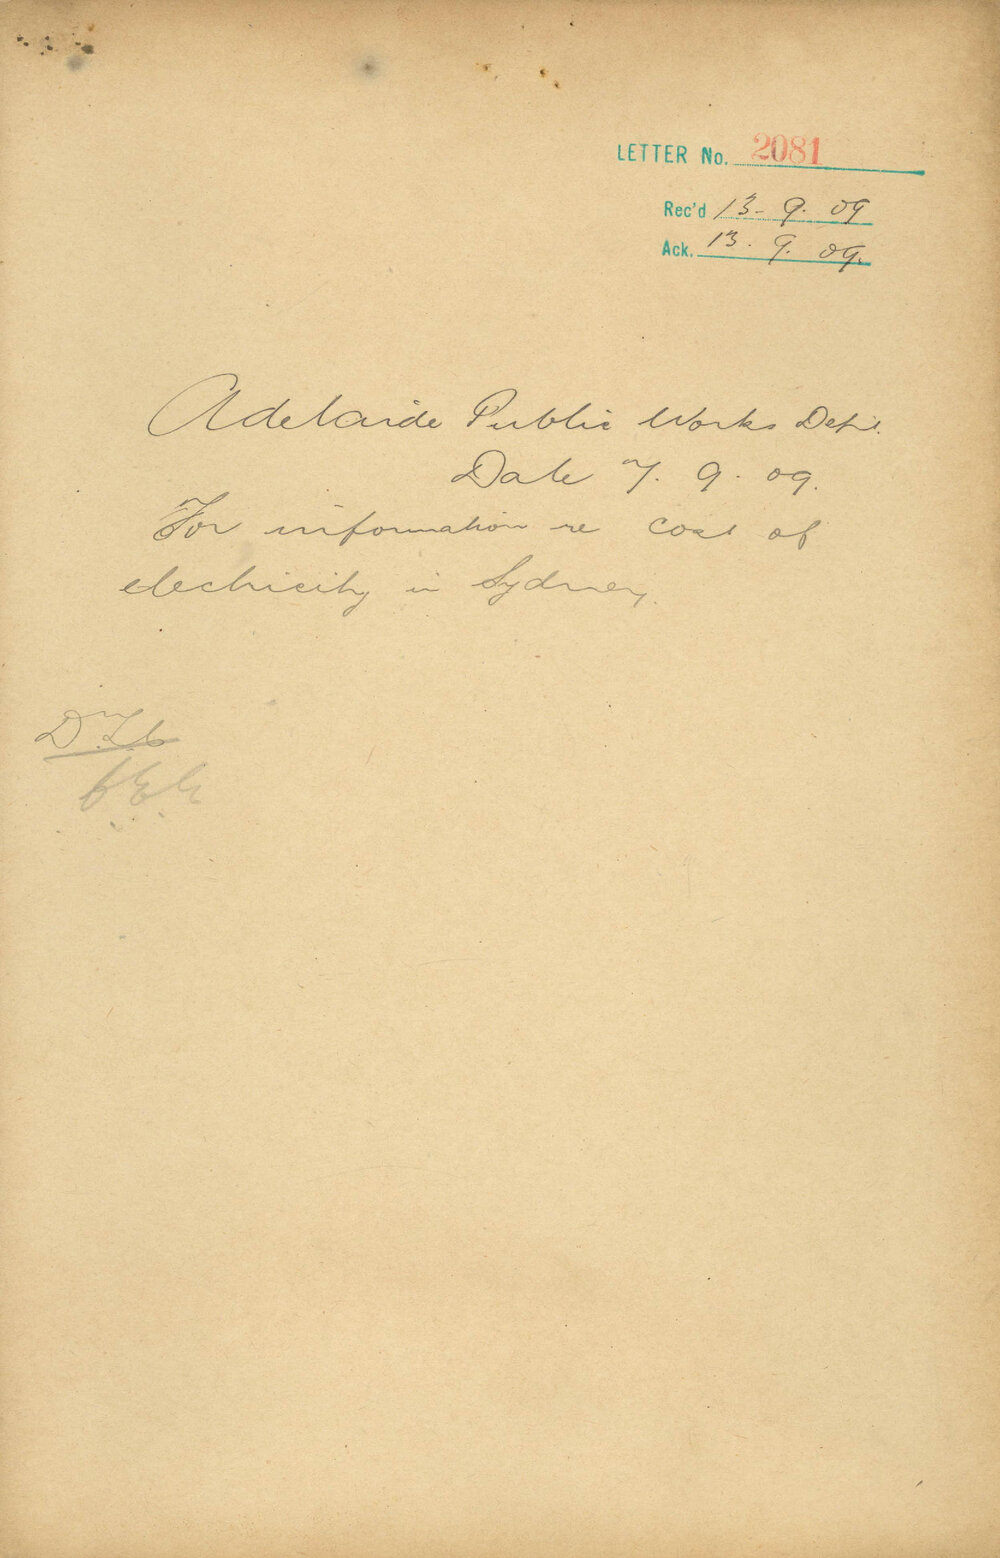 LETTER No. 2081
Rec'd 13-9.09
Ack. 13.9.09.
Adelaide Public Works Dept.
Date 7.9.09.
For information re cost of
electricity in Sydney.